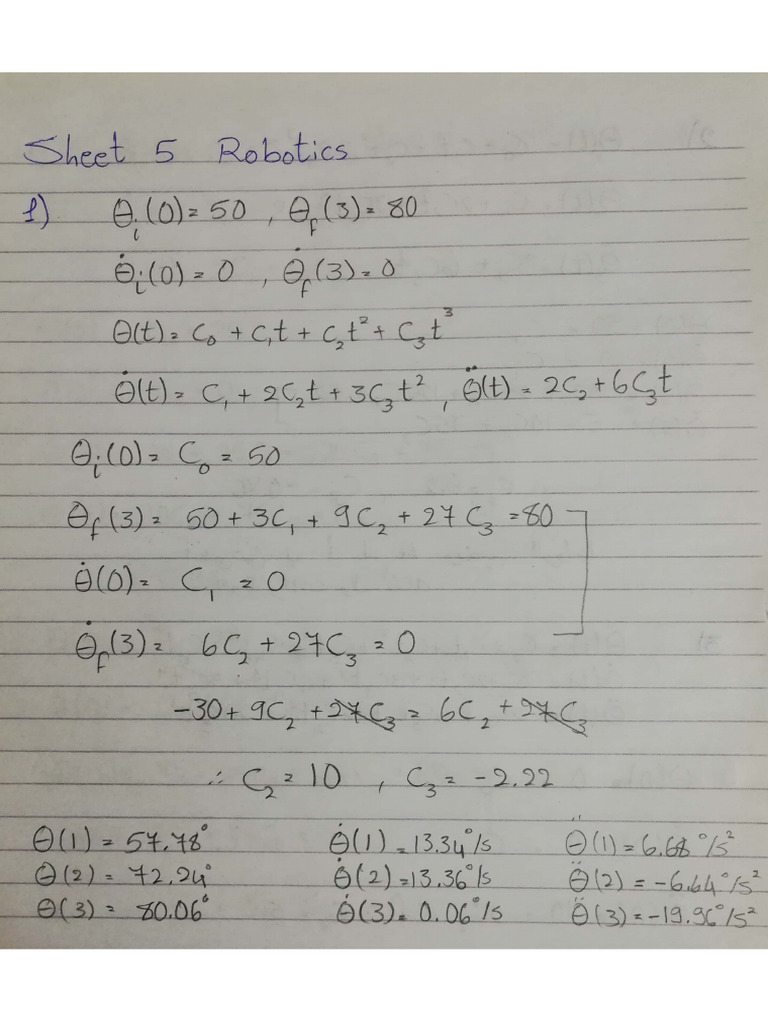 Sheet 5 Robotics
1) θᵢ(0) = 50 , θf(3) = 80
θ̇ᵢ(0) = 0 , θ̇f(3) = 0
θ(t) = C₀ + C₁t + C₂t² + C₃t³
θ̇(t) = C₁ + 2C₂t + 3C₃t² , θ̈(t) = 2C₂ + 6C₃t
θᵢ(0) = C₀ = 50
θf(3) = 50 + 3C₁ + 9C₂ + 27C₃ = 80
θ̇(0) = C₁ = 0
θ̇f(3) = 6C₂ + 27C₃ = 0
-30 + 9C₂ + 27C₃ = 6C₂ + 27C₃
∴ C₂ = 10 , C₃ = -2.22
θ(1) = 57.78° θ̇(1) = 13.34°/s θ̈(1) = 6.68°/s²
θ(2) = 72.24° θ̇(2) = 13.36°/s θ̈(2) = -6.64°/s²
θ(3) = 80.06° θ̇(3) = 0.06°/s θ̈(3) = -19.96°/s²